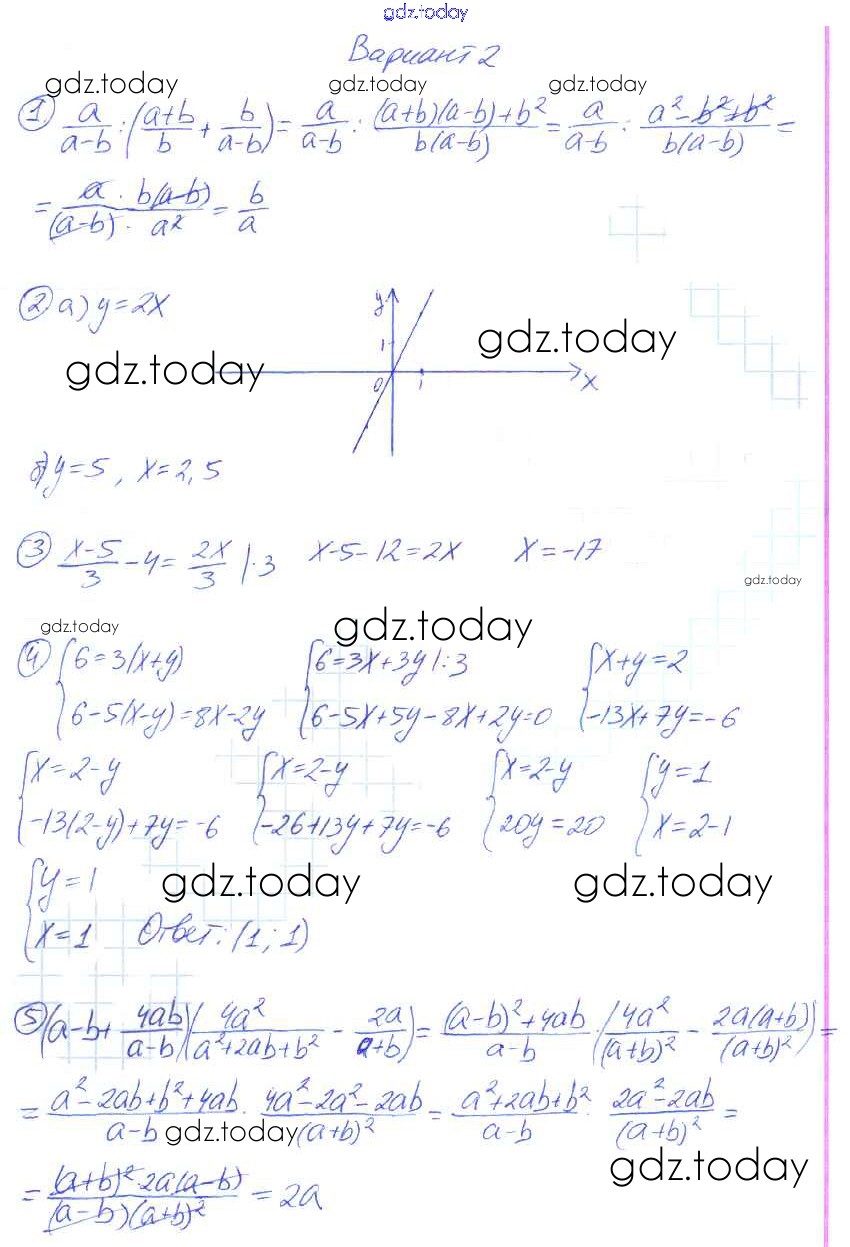 gdz.today
Вариант 2
gdz.today gdz.today gdz.today
① a/(a-b) : ((a+b)/b + b/(a-b)) = a/(a-b) : ((a+b)(a-b)+b²)/(b(a-b)) = a/(a-b) : (a²-b²+b²)/(b(a-b)) =
= (a · b(a-b))/((a-b) · a²) = b/a
② а) y=2x
y
1
0 1 x
gdz.today gdz.today
б) y=5, x=2,5
③ (x-5)/3 - 4 = 2x/3 |·3 x-5-12=2x x=-17
gdz.today
gdz.today gdz.today
④ { 6=3(x+y) { 6=3x+3y |:3 { x+y=2
{ 6-5(x-y)=8x-2y { 6-5x+5y-8x+2y=0 { -13x+7y=-6
{ x=2-y { x=2-y { x=2-y { y=1
{ -13(2-y)+7y=-6 { -26+13y+7y=-6 { 20y=20 { x=2-1
{ y=1 gdz.today gdz.today
{ x=1 Ответ: (1; 1)
⑤ (a-b+ 4ab/(a-b))(4a²/(a²+2ab+b²) - 2a/(a+b)) = ((a-b)²+4ab)/(a-b) · (4a²/(a+b)² - 2a(a+b)/(a+b)²) =
= (a²-2ab+b²+4ab)/(a-b) · (4a²-2a²-2ab)/(a+b)² = (a²+2ab+b²)/(a-b) · (2a²-2ab)/(a+b)² =
gdz.today gdz.today
= ((a+b)² 2a(a-b))/((a-b)(a+b)²) = 2a